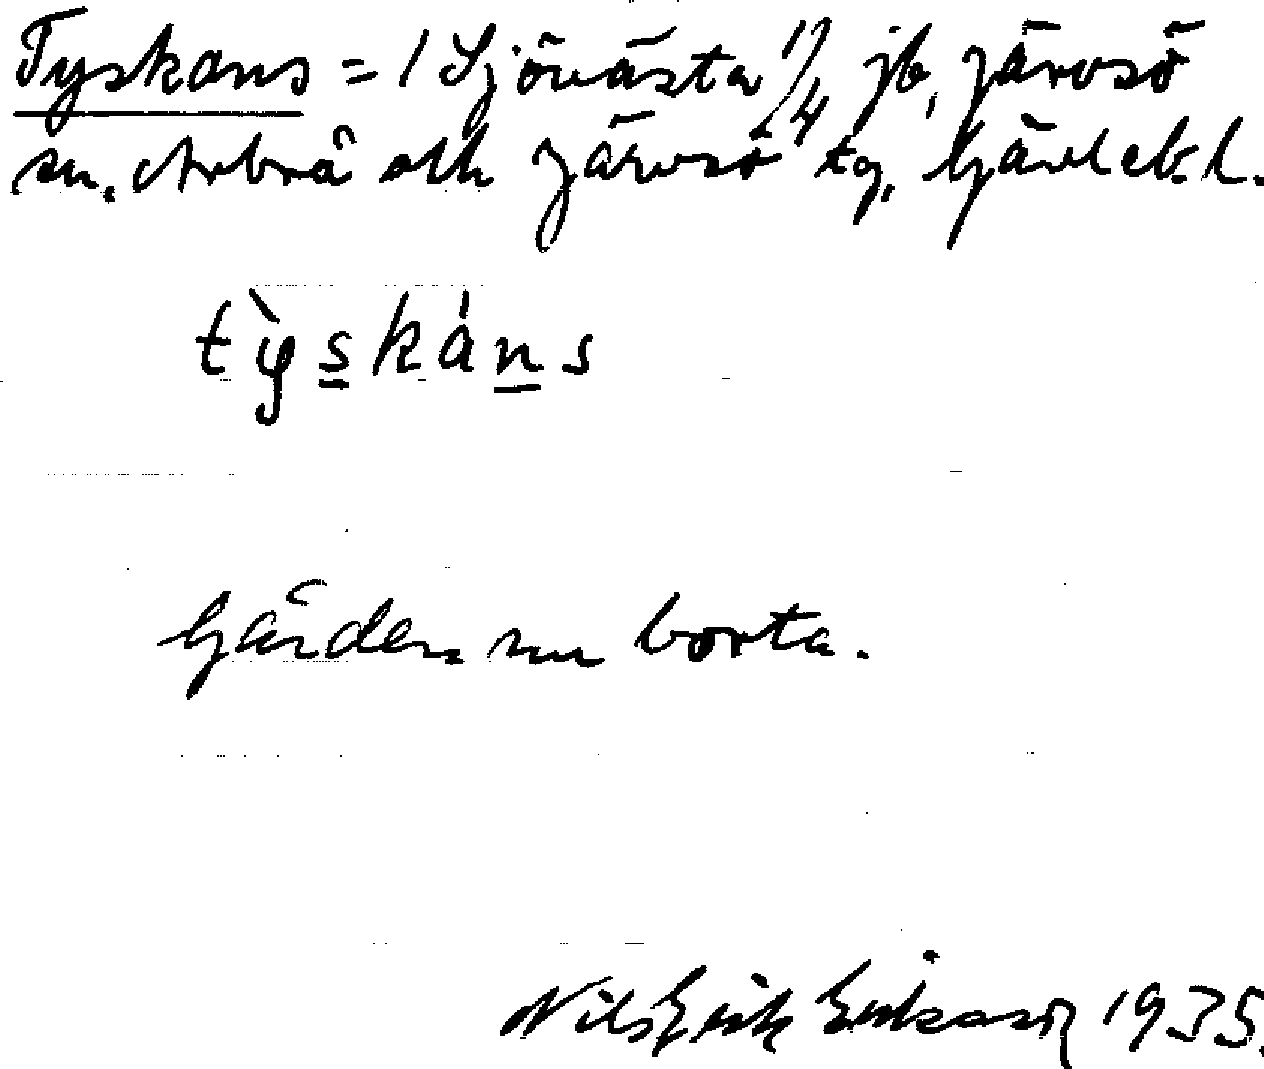 Tyskans = 1 Sjövästa 1/4 jb, Järvsö
sn. Arbrå och Järvsö tg, Gävleb. l.
tỳskáns
Gården nu borta.
Nils Erik Eriksson 1935.